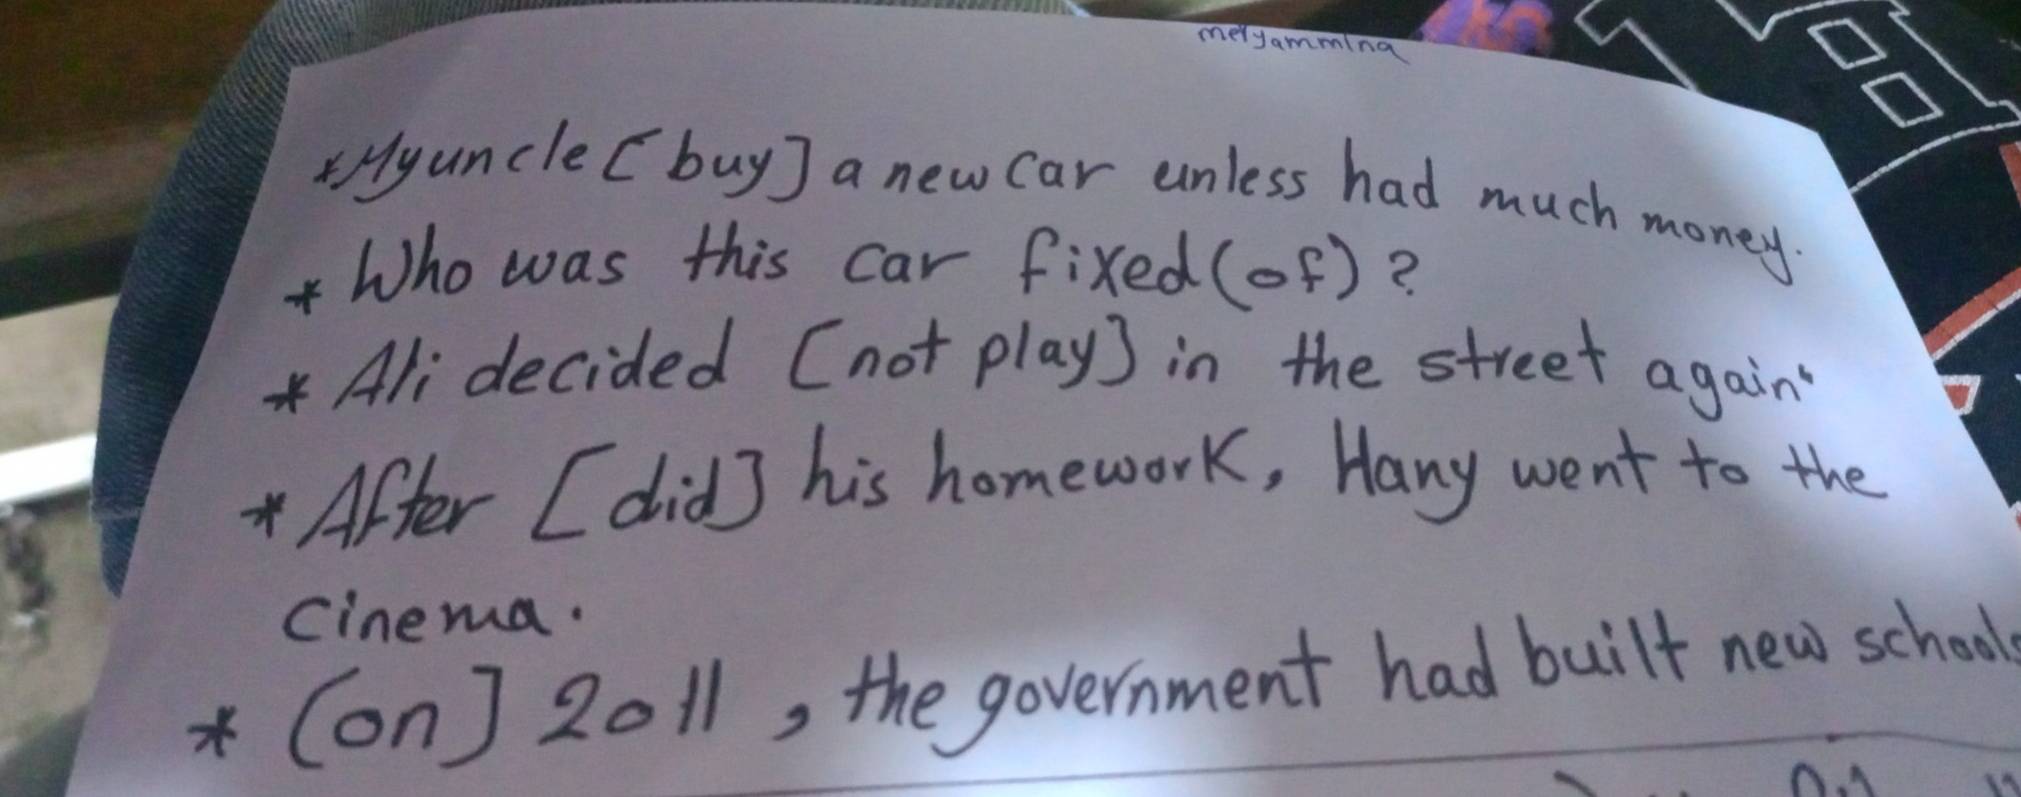 meryammina
*My uncle [buy] a new car unless had much money.
* Who was this car fixed (of)?
* Ali decided [not play] in the street again.
* After [did] his homework, Hany went to the
cinema.
* [on] 2011, the government had built new schools